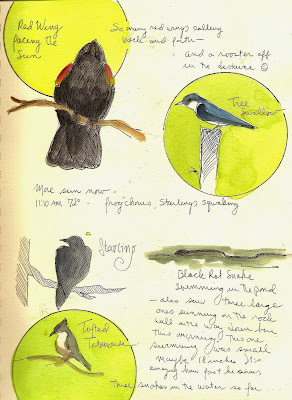 Red Wing
facing the
Sun
So many red wings calling
back and forth —
and a rooster off
in the distance ☺
Tree
Swallow
More sun now -
11:10 AM 72° - frog chorus, Starlings squawking
Starling
Black Rat Snake
swimming in the pond
— also saw three large
ones sunning in the rock
wall all the way down here
this morning. This one
swimming was small
maybe 18 inches. It's
amazing how fast he swims
Three snakes in the water so far...
Tufted
Titmouse